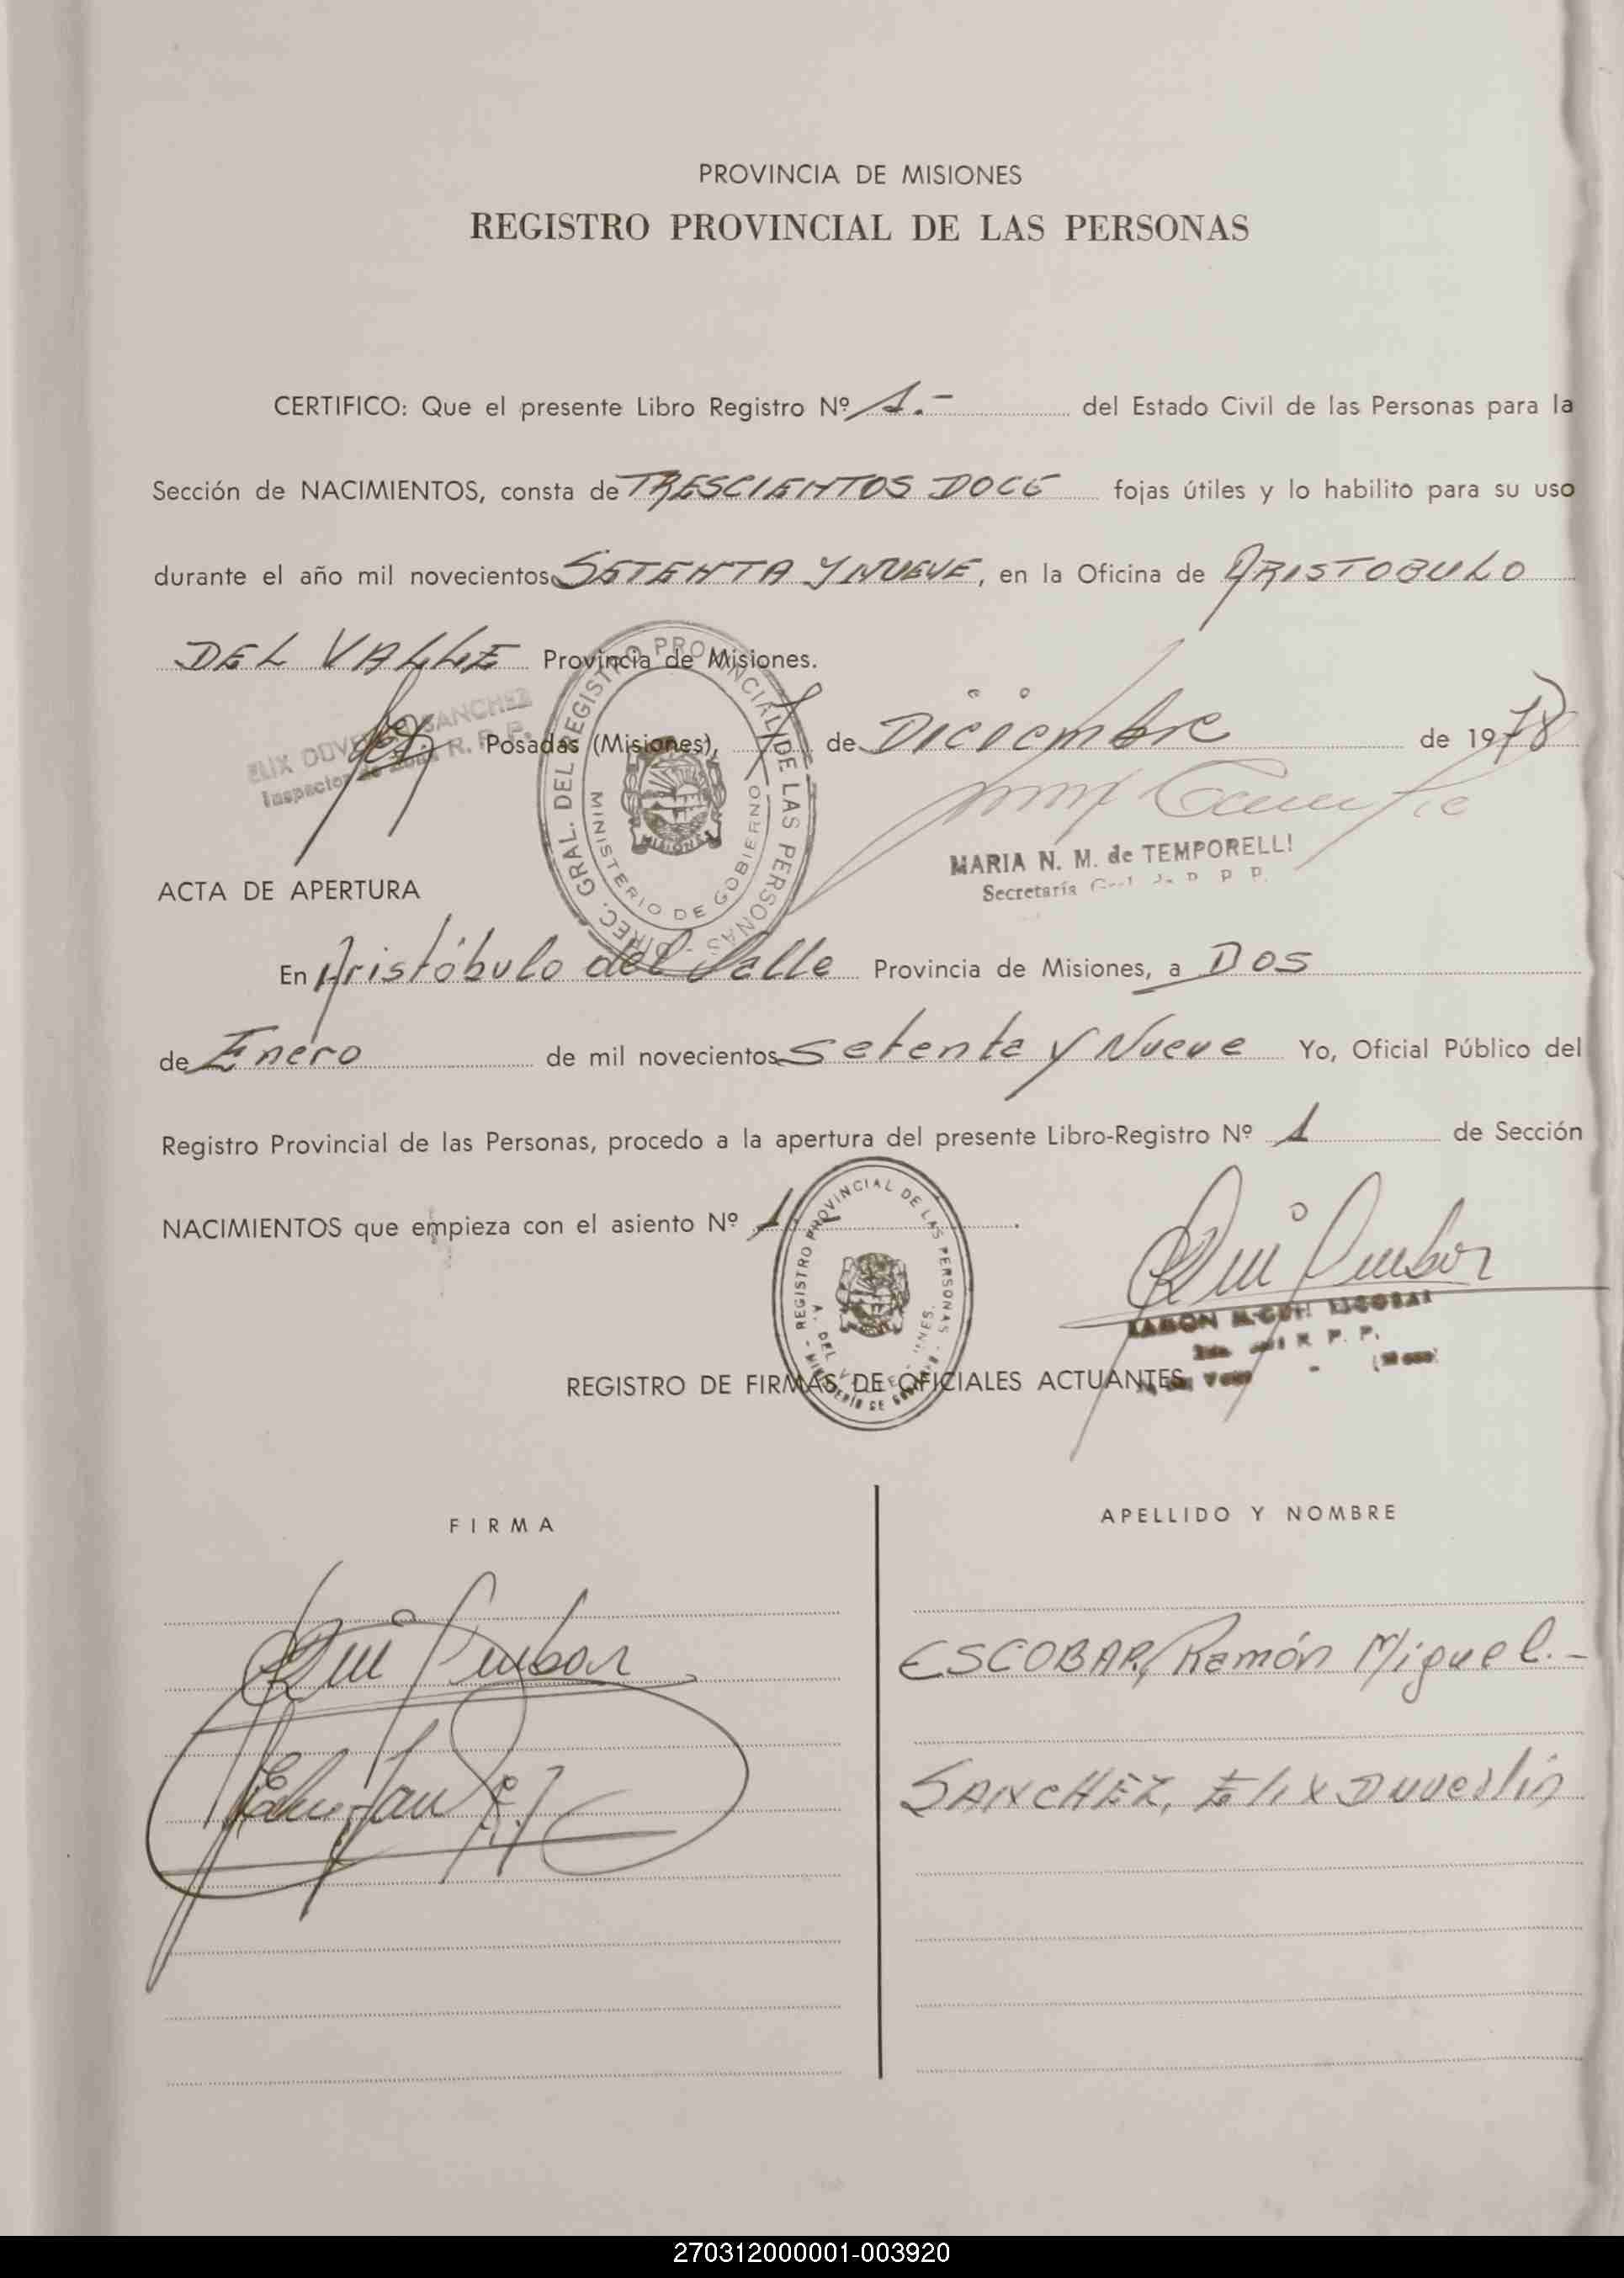 PROVINCIA DE MISIONES
REGISTRO PROVINCIAL DE LAS PERSONAS
CERTIFICO: Que el presente Libro Registro Nº 1.- del Estado Civil de las Personas para la
Sección de NACIMIENTOS, consta de TRESCIENTOS DOCE fojas útiles y lo habilito para su uso
durante el año mil novecientos SETENTA Y NUEVE, en la Oficina de ARISTOBULO
DEL VALLE Provincia de Misiones.
Posadas (Misiones), de Diciembre de 1978
ELIX DUVE SANCHEZ
Inspector de Zona R. P. P.
DIREC. GRAL. DEL REGISTRO PROVINCIAL DE LAS PERSONAS -
MINISTERIO DE GOBIERNO
MISIONES
MARIA N. M. de TEMPORELLI
Secretaría
ACTA DE APERTURA
En Aristóbulo del Valle Provincia de Misiones, a DOS
de Enero de mil novecientos Setenta y Nueve Yo, Oficial Público del
Registro Provincial de las Personas, procedo a la apertura del presente Libro-Registro Nº 1 de Sección
NACIMIENTOS que empieza con el asiento Nº 1
- REGISTRO PROVINCIAL DE LAS PERSONAS -
RAMON MIGUEL ESCOBAR
R. P. P.
REGISTRO DE FIRMAS DE OFICIALES ACTUANTES
FIRMA
APELLIDO Y NOMBRE
ESCOBAR, Ramón Miguel.-
SANCHEZ, Elix Duverlin
270312000001-003920